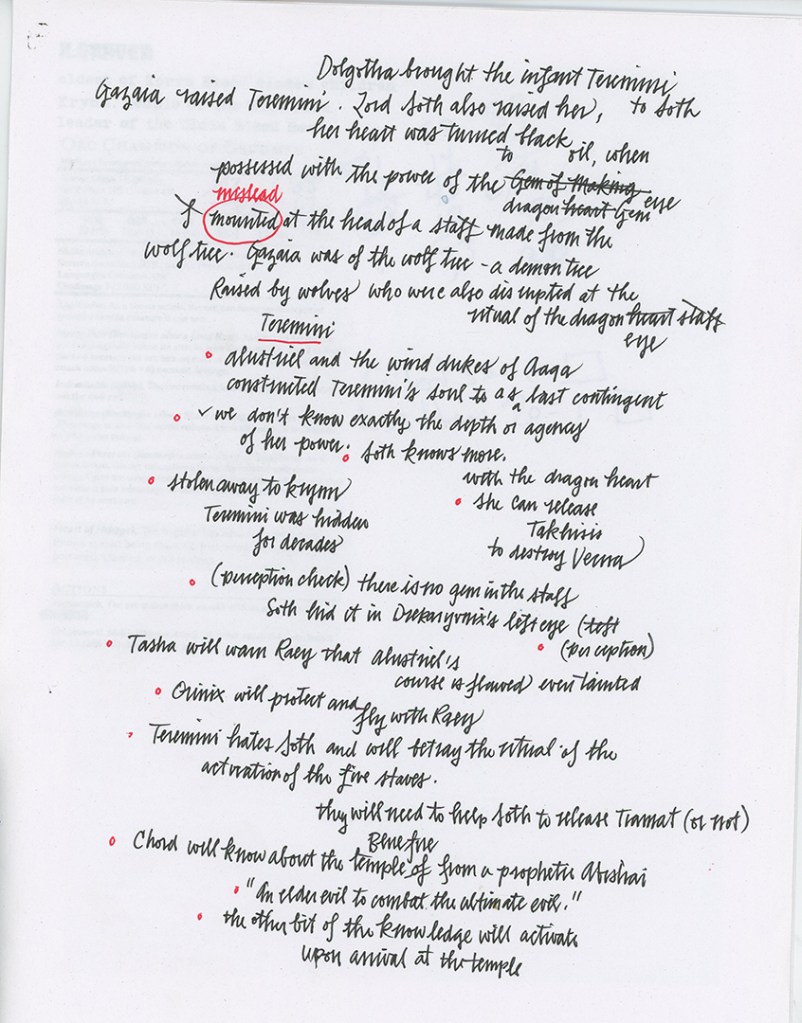 Dolgotha brought the infant Teremini
Gazaia raised Teremini. Lord Soth also raised her, to Soth
her heart was turned black
to oil, when
possessed with the power of the Gem of Making eye
mislead dragon heart Gem
mounted at the head of a staff made from the
wolf tree. Gazaia was of the wolf tree - a demon tree
Raised by wolves who were also disrupted at the
ritual of the dragon heart staff
Teremini eye
• Alustriel and the wind dukes of Aaqa
constructed Teremini's soul to as a last contingent
• ✓ we don't know exactly the depth or agency
of her power. • Soth knows more.
with the dragon heart
• stolen away to krynn • she can release
Teremini was hidden Takhisis
for decades to destroy Vecna)
• (perception check) there is no gem in the staff
Soth hid it in left eye (
• (perception)
• Tasha will warn Raey that Alustriel's
course is flawed) even tainted
• Orinix will protect and
fly with Raey
• Teremini hates Soth and will betray the ritual of the
activation of the five staves.
they will need to help Soth to release Tiamat (or not)
Benefire
• Chord will know about the temple of from a prophetic Abishai
• "An elder evil to combat the ultimate evil."
• the other bit of the knowledge will activate
upon arrival at the temple